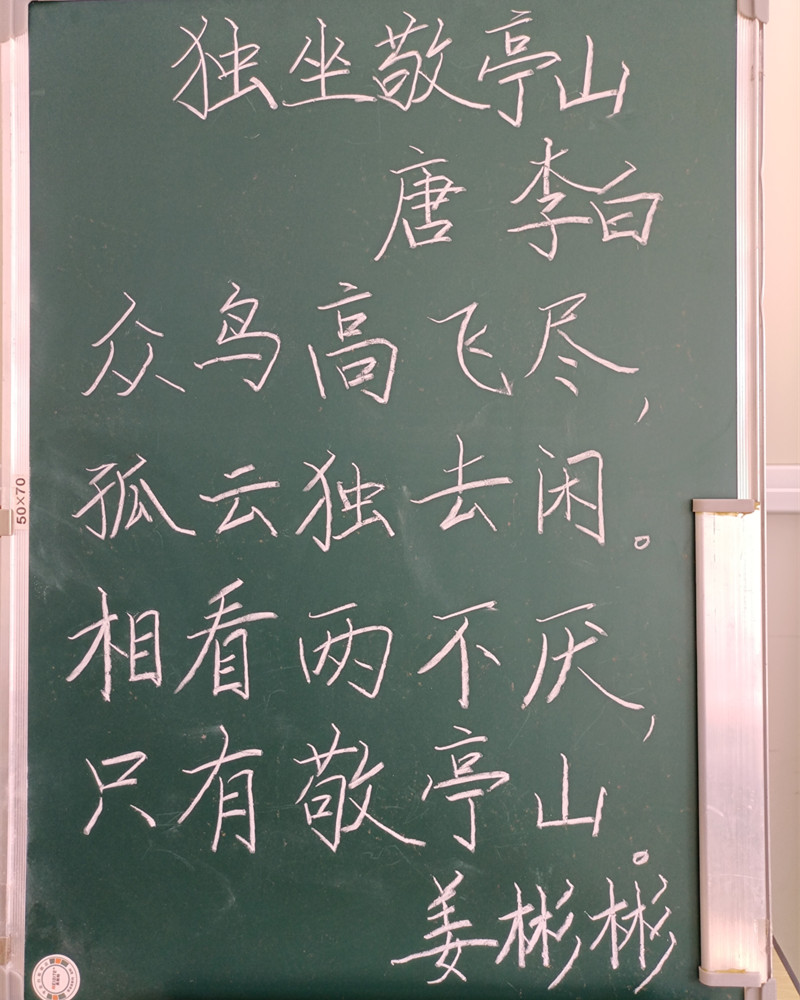 独坐敬亭山
唐 李白
众鸟高飞尽,
孤云独去闲。
相看两不厌,
只有敬亭山。
姜彬彬
50×70